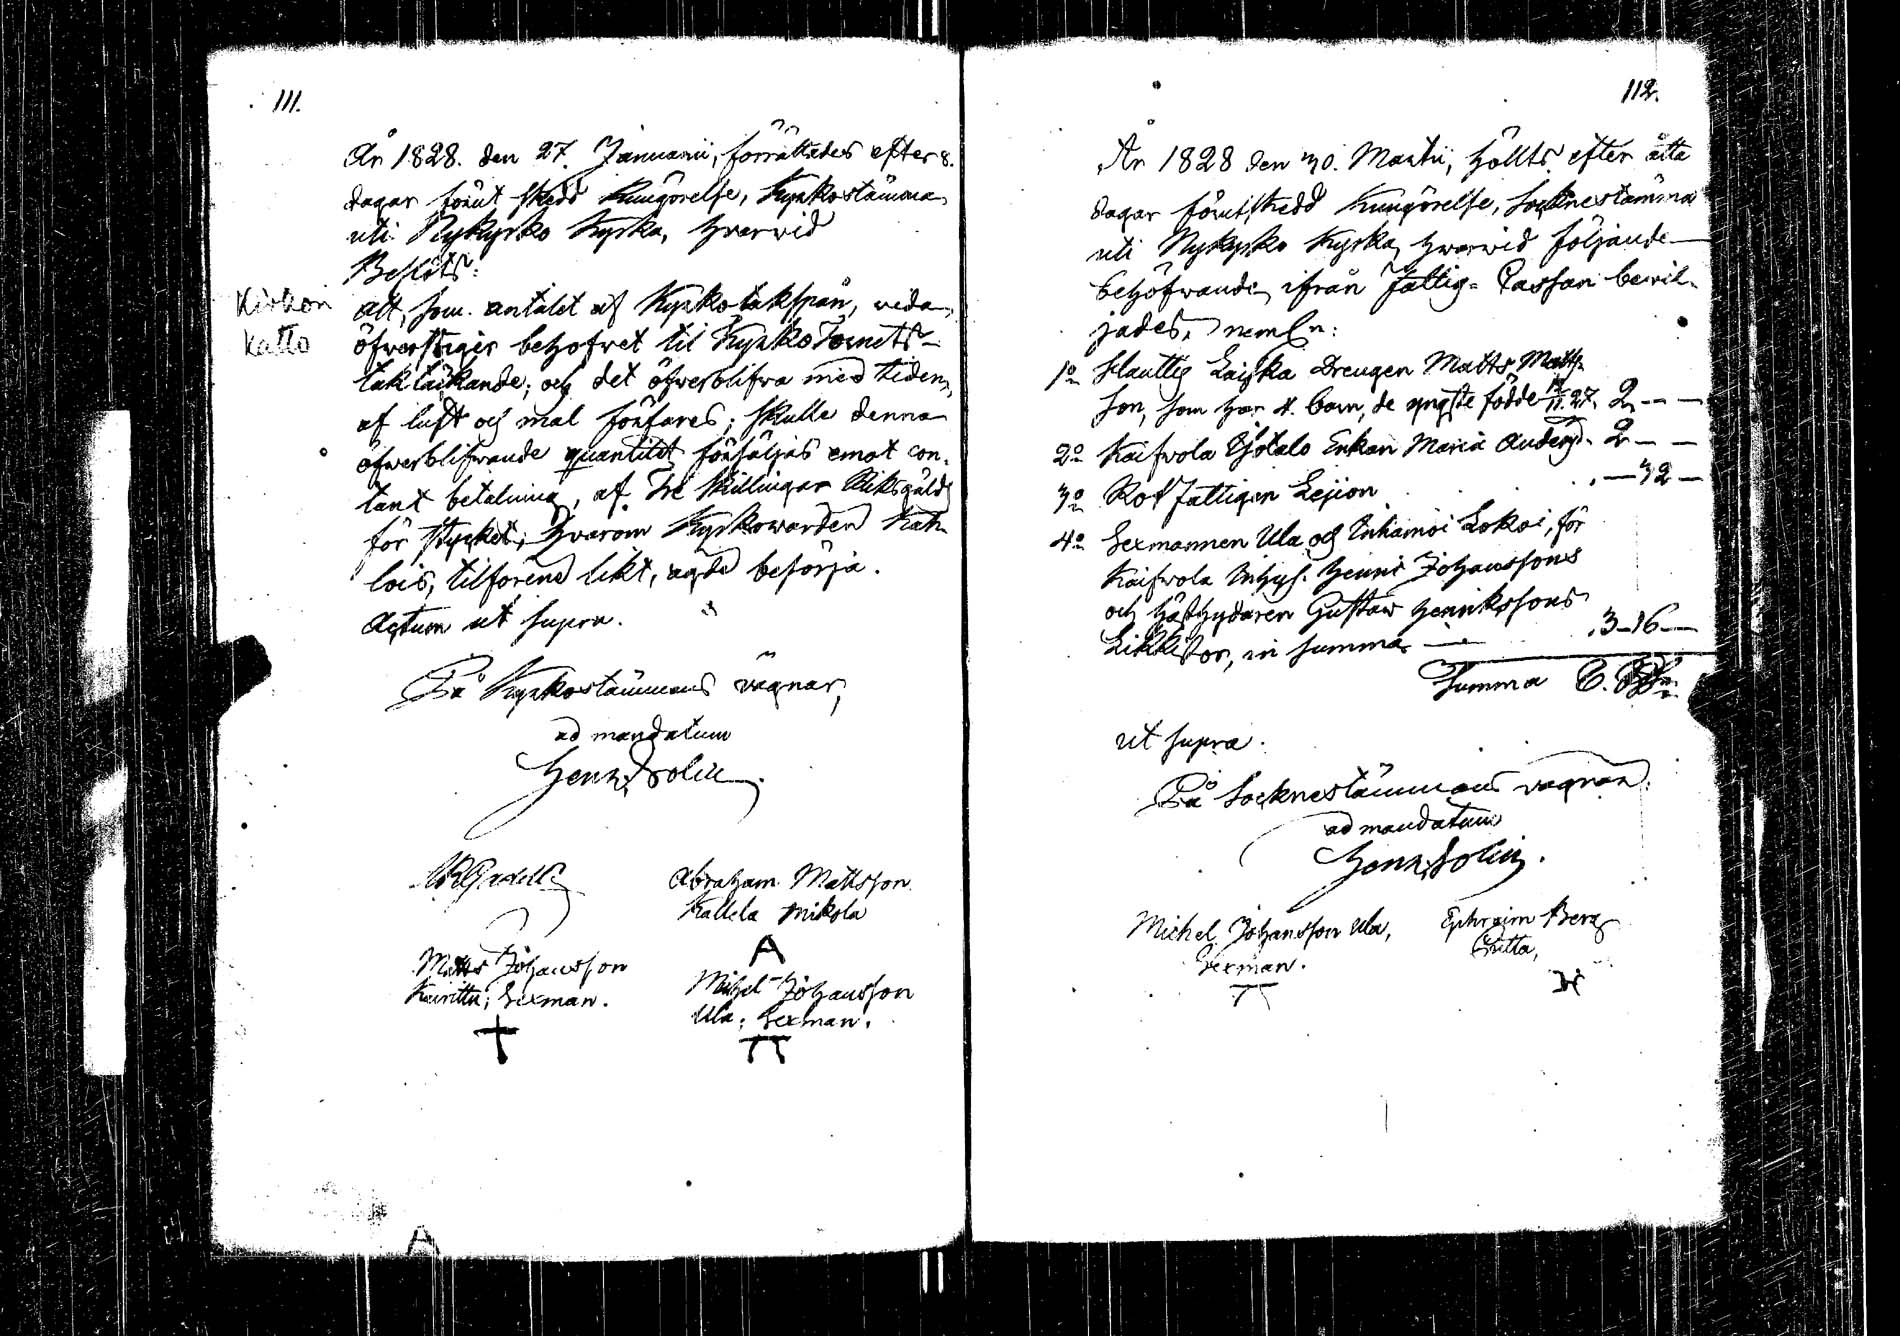 111.
År 1828. den 27. Januarii, förrättades efter 8.
dagar förut skedd Kungörelse, Kyrkostämma
uti Nykyrko Kyrka, hvarvid
Beslöts:
Kirkon
Katto
att, som antalet af Kyrkotakspån, vida
öfverstiger behofvet til KyrkoTornets
taktäckande; och det öfverblifna med tiden,
af luft och mal förfares; skulle denna
öfverblifvande quantitet försäljas emot con-
tant betalning, af Tre Skillingar Riksgälds
för stycket; hvarom Kyrkowärden Kah-
lois, tilförene likt, ägde besörja.
Actum ut supra.
På Kyrkostämmans vägnar,
ad mandatum
Henr. Solin.
Abraham Mattsson
Kallela Mikola
A
Matts Johansson
Kairittu, Sexman.
Michel Johansson
Ula, Sexman.
112.
År 1828 den 30. Martii, hölts efter åtta
dagar förut skedd Kungörelse, Socknestämma
uti Nykyrko Kyrka, hvarvid följande
behöfvande, ifrån Fattig-Cassan bevil-
jades, neml:n:
1o Hauttis Laiska Drengen Matts Matts-
son, som har 4. barn, de yngste födde 27. 2 - -
2o Kaifvola Ylötalo Enkan Maria Andersd. 2 - -
3o RotFattigen Lejion . - 32 -
4o Sexmannen Ula och Inhamoi Lokoi, för
Kaifvola Inhys. Henric Johanssons
och Gustav Henrikssons
Likkistor, in summa - 3-16-
Summa
ut supra.
På Socknestämmans vägnar:
ad mandatum
Henr. Solin.
Michel Johansson Ula,
Sexman.
Ephraim Berg